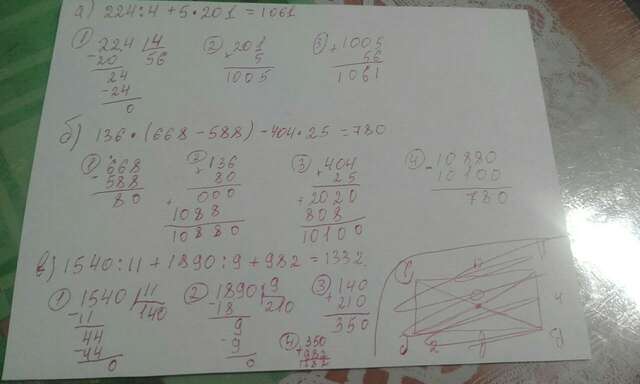 а) 224:4+5·201=1061
① 224 | 4
-20 56
24
-24
0
② 201
× 5
1005
③ 1005
+ 56
1061
б) 136·(668-588)-404·25=780
① 668
- 588
80
② 136
× 80
000
+
1088
10880
③ 404
× 25
+ 2020
808
10100
④ 10880
- 10100
780
в) 1540:11+1890:9+982=1332
① 1540 | 11
-11 140
44
-44
0
② 1890 | 9
-18 210
9
-9
0
③ 140
+ 210
350
④ 350
+ 982